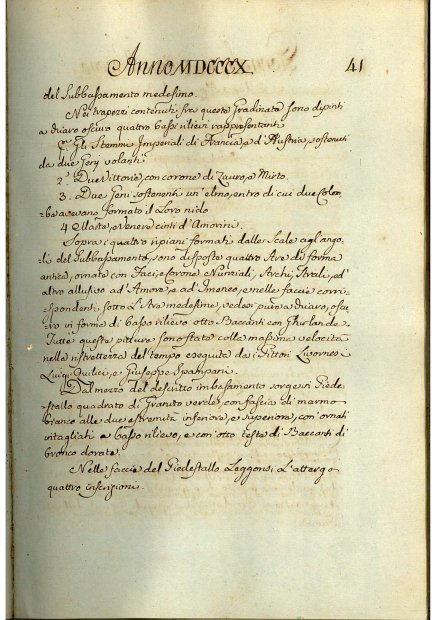 Anno MDCCCX. 41
del Subbassamento medesimo.
Nei trapezzi contenuti fra queste Gradinate sono dipinti
a chiaro oscuro quattro bassi rilievi rappresentanti
1.° Gli Stemmi Imperiali di Francia, e d'Austria, sostenuti
da due Genj volanti.
2.° Due Vittorie, con corone di Lauro, e Mirto.
3. Due Genj sostenenti un'elmo, entro di cui due Colom,
=be avevano formato il Loro nido
4 Marte, e Venere cinti d'Amorini.
Sopra i quattro ripiani formati dalle Scale agl'ango,
=li del Subbassamento, sono disposte quattro Are di forma
antica, ornate con Faci, e Corone Nunziali, Archi, Strali, ed'
altro allusivo ad'Amore, e ad Imeneo, e nelle faccie corri
=spondenti sotto l'Ara medesime, vedesi pure a chiaro, oscu
=ro in forma di basso rilievo otto Baccanti con Ghirlande.
Tutte queste pitture sono state colla massima velocità
nella ristrettezza del tempo eseguite da i Pittori Livornesi
Luigi Quilici, e Giuseppe Spampani.
Dal mezzo del descritto imbasamento sorge un Piede
=stallo quadrato di Granito verde, con fascia di marmo
bianco alle due estremità inferiore, e superiore, con'ornati
intagliati a basso rilievo, e con'otto teste di Baccanti di
bronco dorate.
Nelle faccie del Piedestallo Leggonsi L'attergo
quattro inscrizioni.